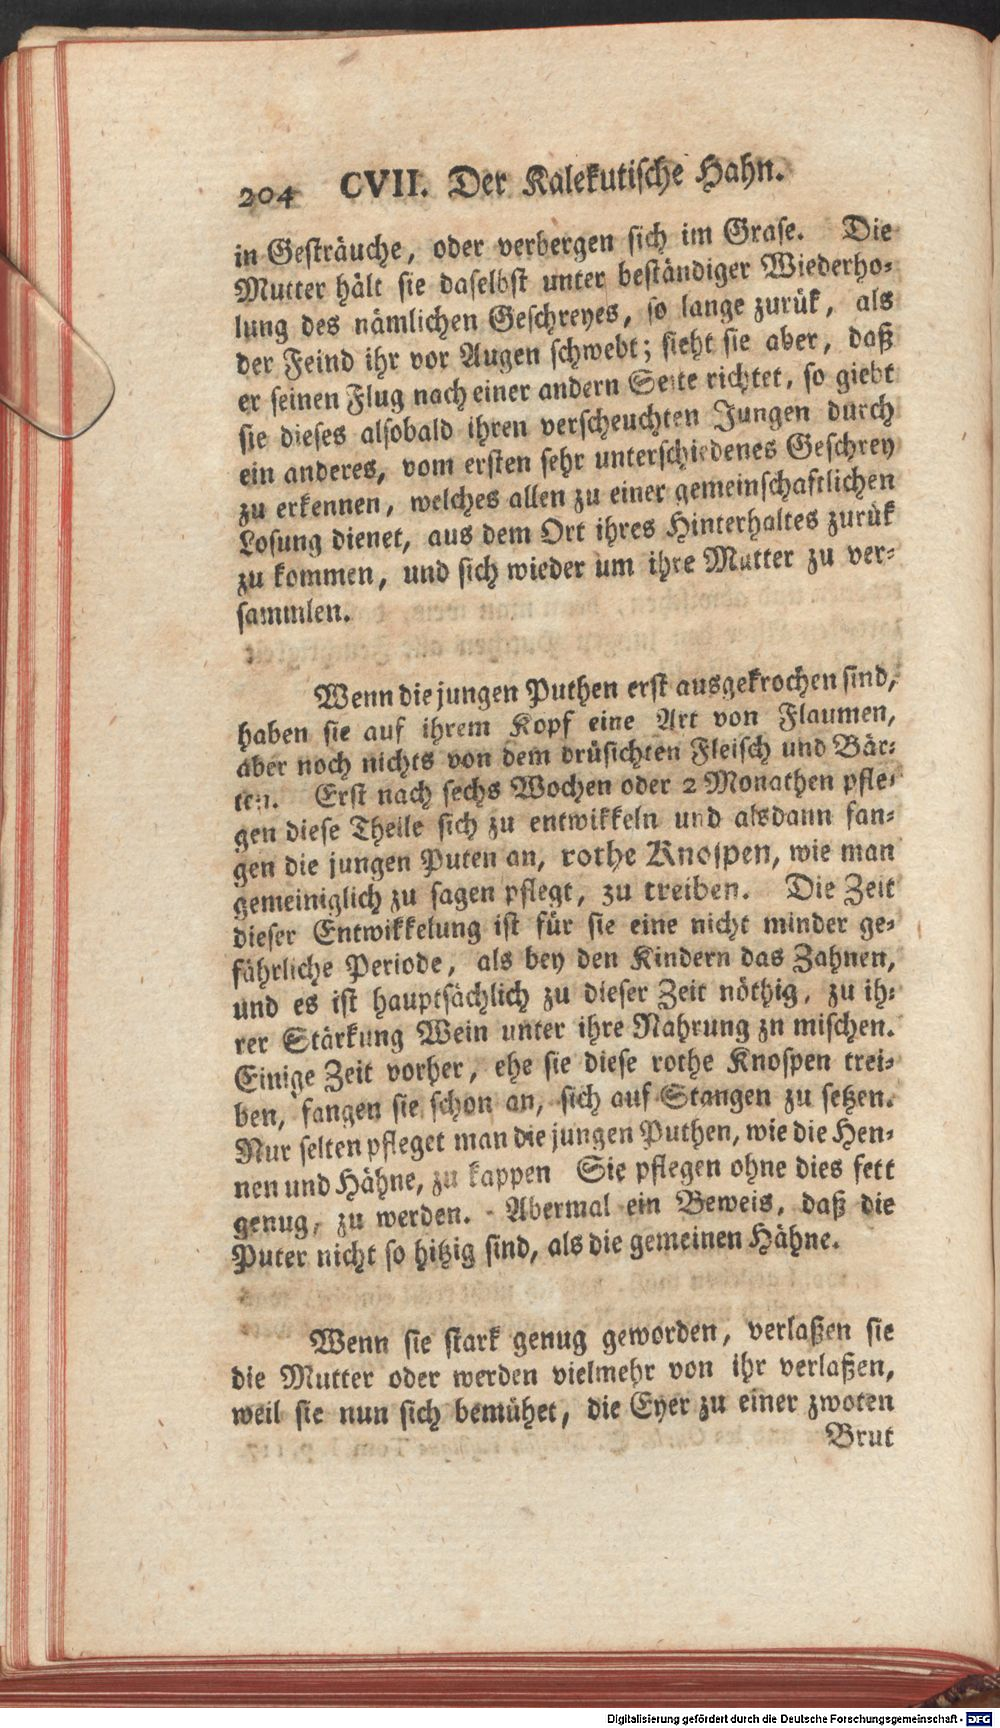 204 CVII. Der Kalekutische Hahn.
in Gesträuche, oder verbergen sich im Grase. Die
Mutter hält sie daselbst unter beständiger Wiederho-
lung des nämlichen Geschreyes, so lange zurük, als
der Feind ihr vor Augen schwebt; sieht sie aber, daß
er seinen Flug nach einer andern Seite richtet, so giebt
sie dieses alsobald ihren verscheuchten Jungen durch
ein anderes, vom ersten sehr unterschiedenes Geschrey
zu erkennen, welches allen zu einer gemeinschaftlichen
Losung dienet, aus dem Ort ihres Hinterhaltes zurük
zu kommen, und sich wieder um ihre Mutter zu ver-
sammlen.
Wenn die jungen Puthen erst ausgekrochen sind,
haben sie auf ihrem Kopf eine Art von Flaumen,
aber noch nichts von dem drüsichten Fleisch und Bär-
ten. Erst nach sechs Wochen oder 2 Monathen pfle-
gen diese Theile sich zu entwikkeln und alsdann fan-
gen die jungen Puten an, rothe Knospen, wie man
gemeiniglich zu sagen pflegt, zu treiben. Die Zeit
dieser Entwikkelung ist für sie eine nicht minder ge-
fährliche Periode, als bey den Kindern das Zahnen,
und es ist hauptsächlich zu dieser Zeit nöthig, zu ih-
rer Stärkung Wein unter ihre Nahrung zn mischen.
Einige Zeit vorher, ehe sie diese rothe Knospen trei-
ben, fangen sie schon an, sich auf Stangen zu setzen.
Nur selten pfleget man die jungen Puthen, wie die Hen-
nen und Hähne, zu kappen Sie pflegen ohne dies fett
genug, zu werden. - Abermal ein Beweis, daß die
Puter nicht so hitzig sind, als die gemeinen Hähne.
Wenn sie stark genug geworden, verlaßen sie
die Mutter oder werden vielmehr von ihr verlaßen,
weil sie nun sich bemühet, die Eyer zu einer zwoten
Brut
Digitalisierung gefördert durch die Deutsche Forschungsgemeinschaft - DFG